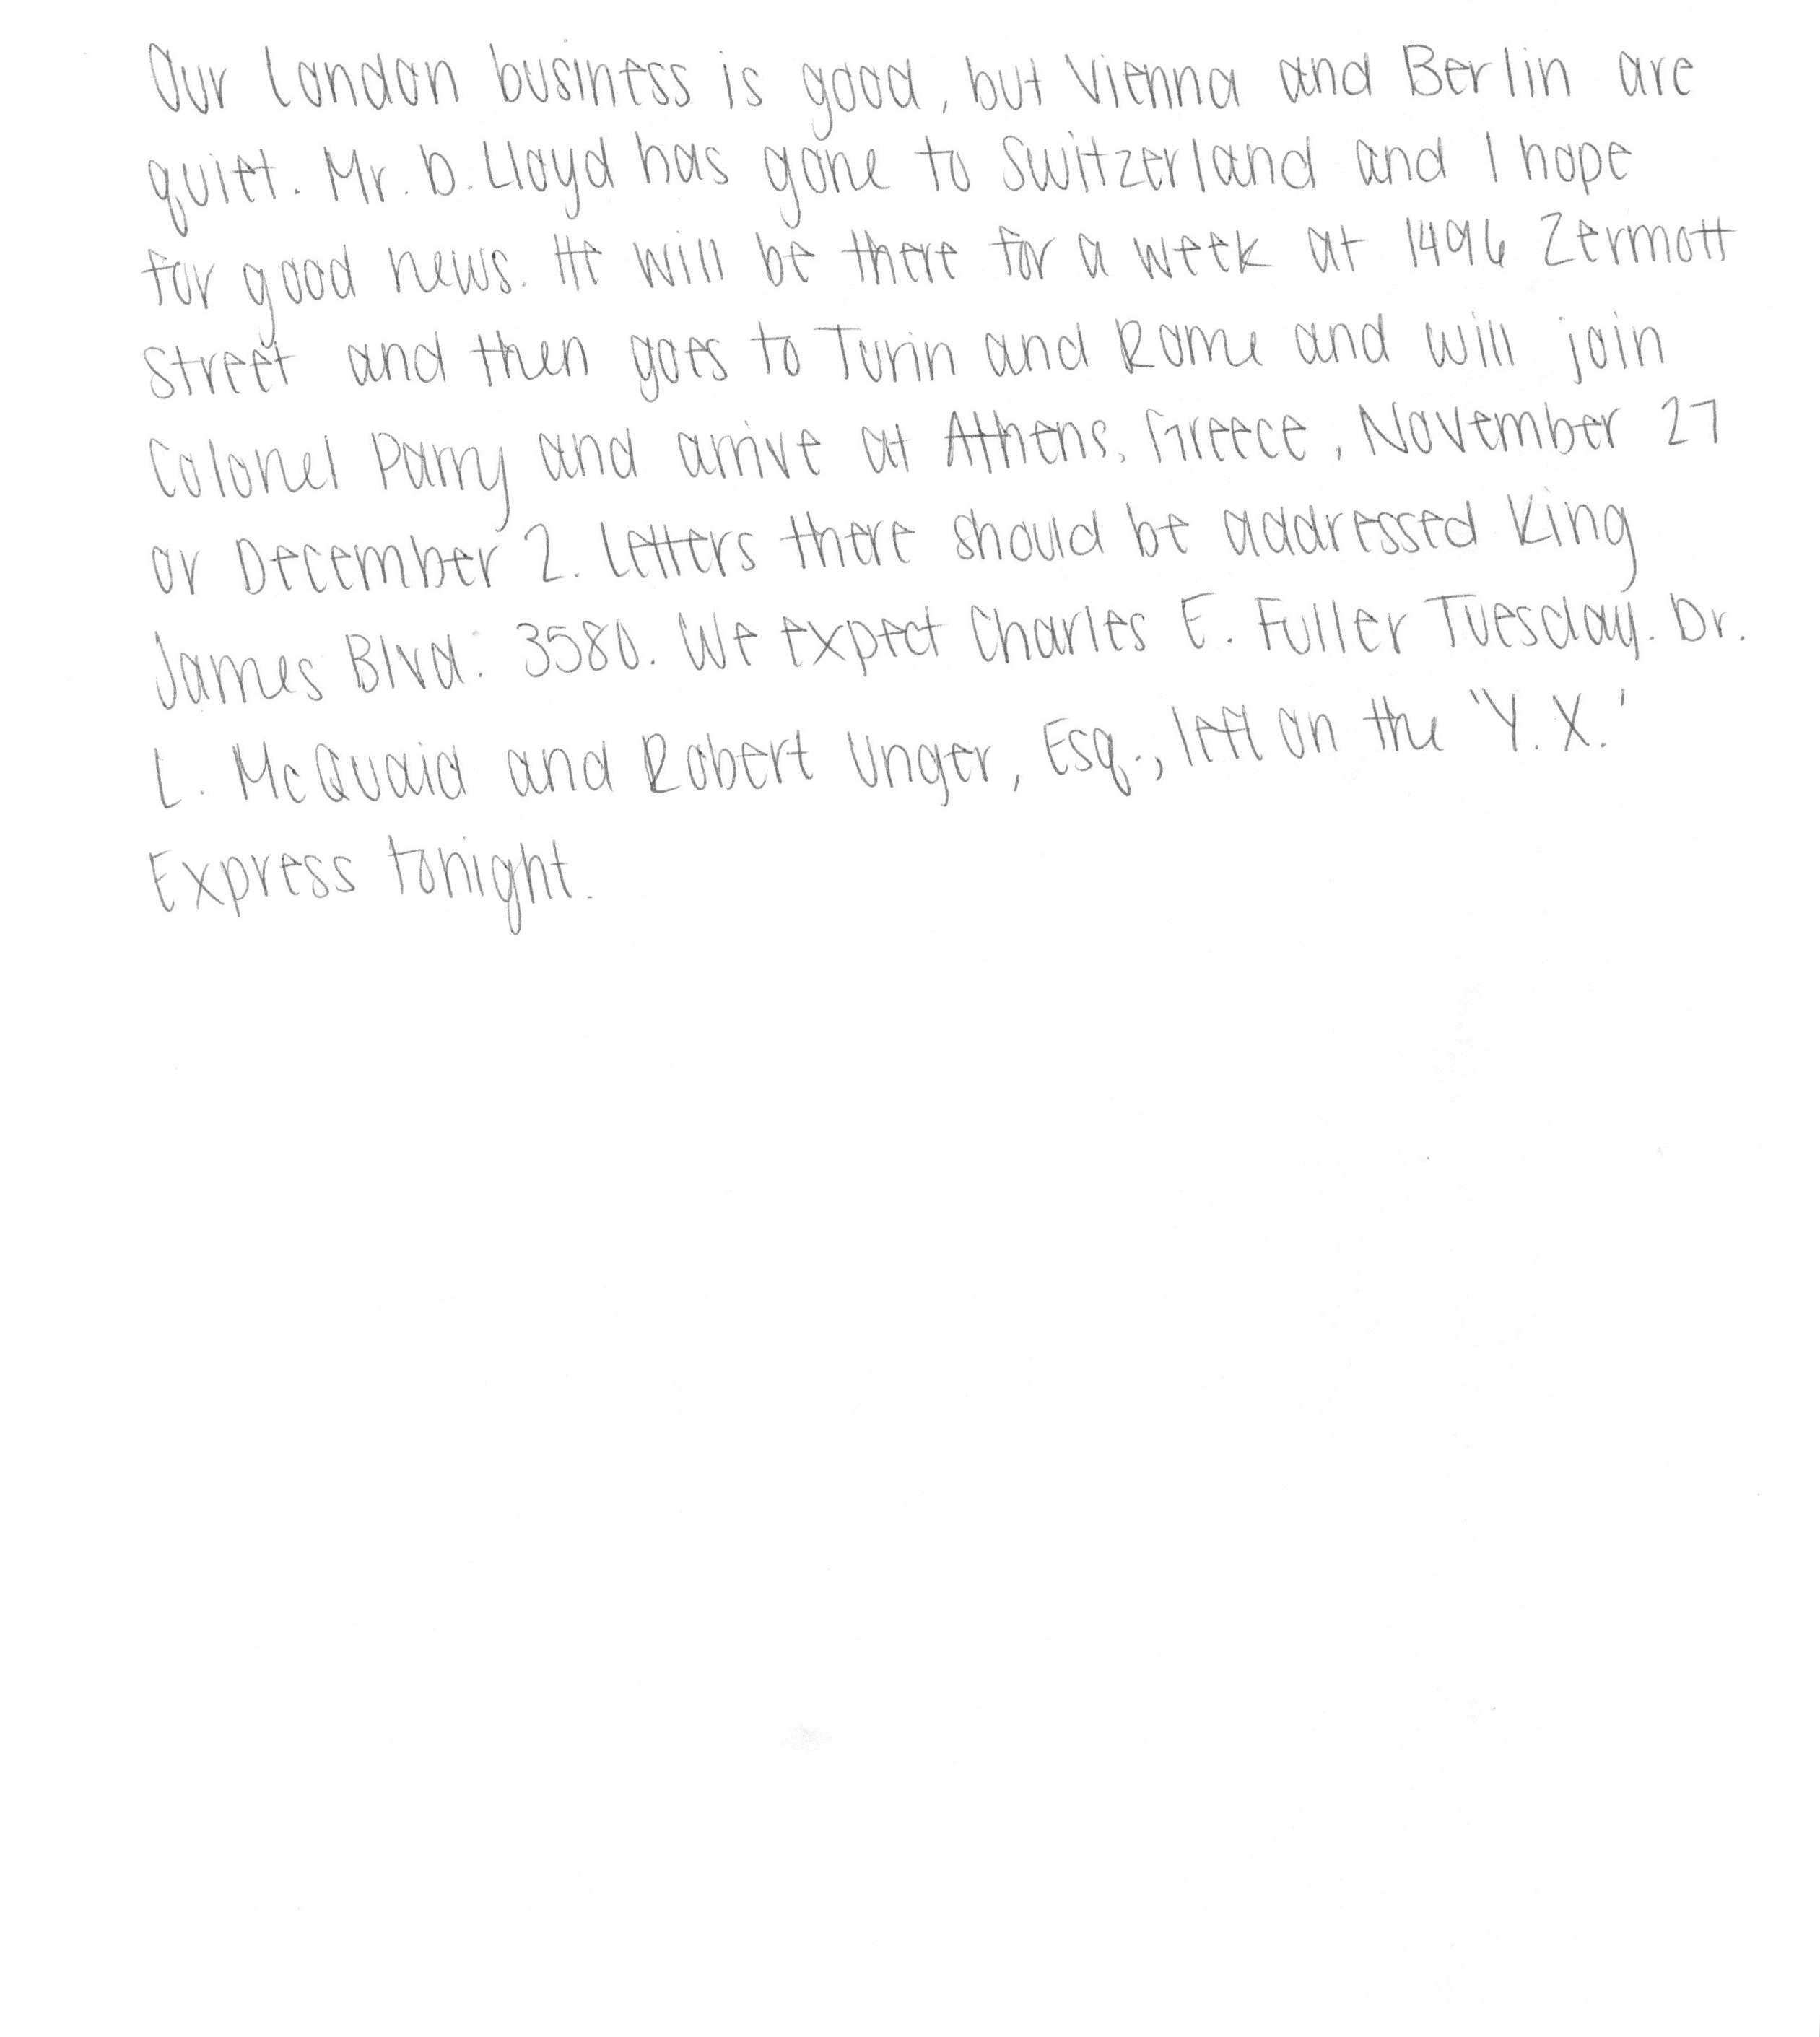 Our London business is good, but Vienna and Berlin are
quiet. Mr. D. Lloyd has gone to Switzerland and I hope
for good news. He will be there for a week at 1496 Zermott
street and then goes to Turin and Rome and will join
Colonel Parry and arrive at Athens, Greece, November 27
or December 2. Letters there should be addressed King
James Blvd. 3580. We expect Charles E. Fuller Tuesday. Dr.
L. McQuaid and Robert Unger, Esq., left on the 'Y.X.'
Express tonight.